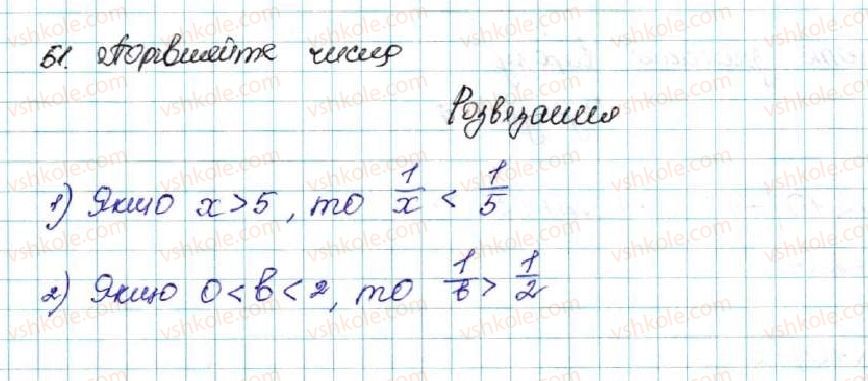 51. Порівняйте числа
Розвязання
1) Якщо x > 5, то 1/x < 1/5
2) Якщо 0 < b < 2, то 1/b > 1/2
vshkole.com